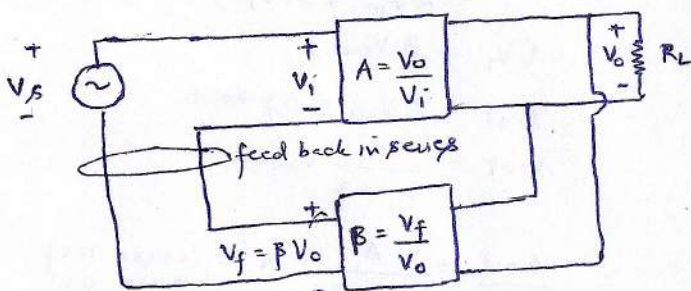 +
Vs
-
+
Vi
-
A = Vo/Vi
+
Vo
-
RL
feed back in series
+
Vf = β Vo
β = Vf/Vo